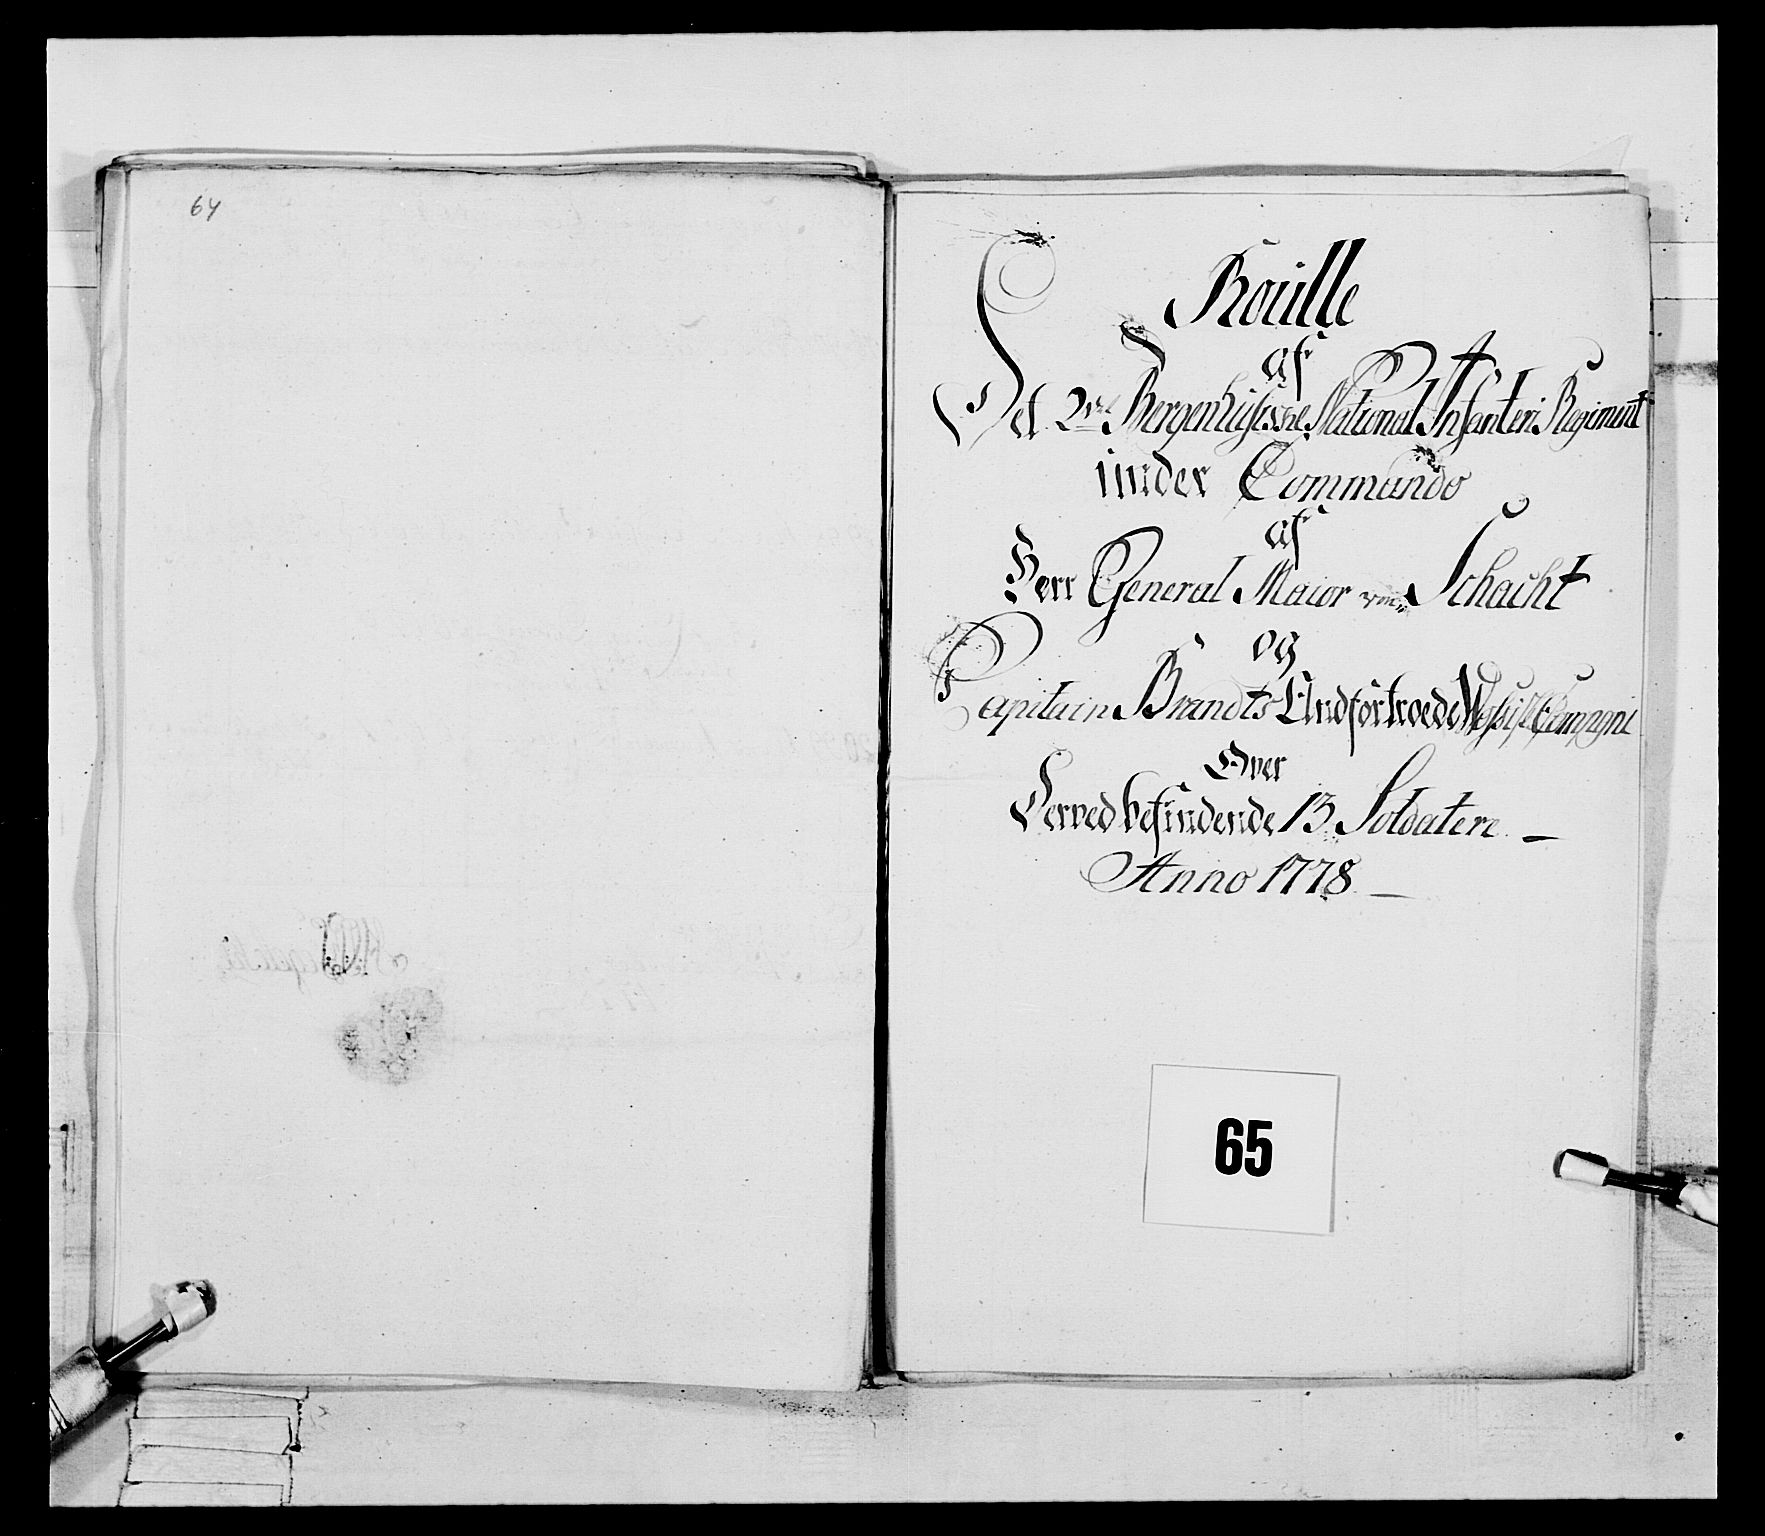 64
Roulle
af
Det 2det Bergenhusiske National Infanteri Regiment
under Commando
af
Herr General Maior von Schacht
og
Capitain Brandts Andfortroede Compagni
Over
Derved befindende 13 Soldatere
Anno 1778
65